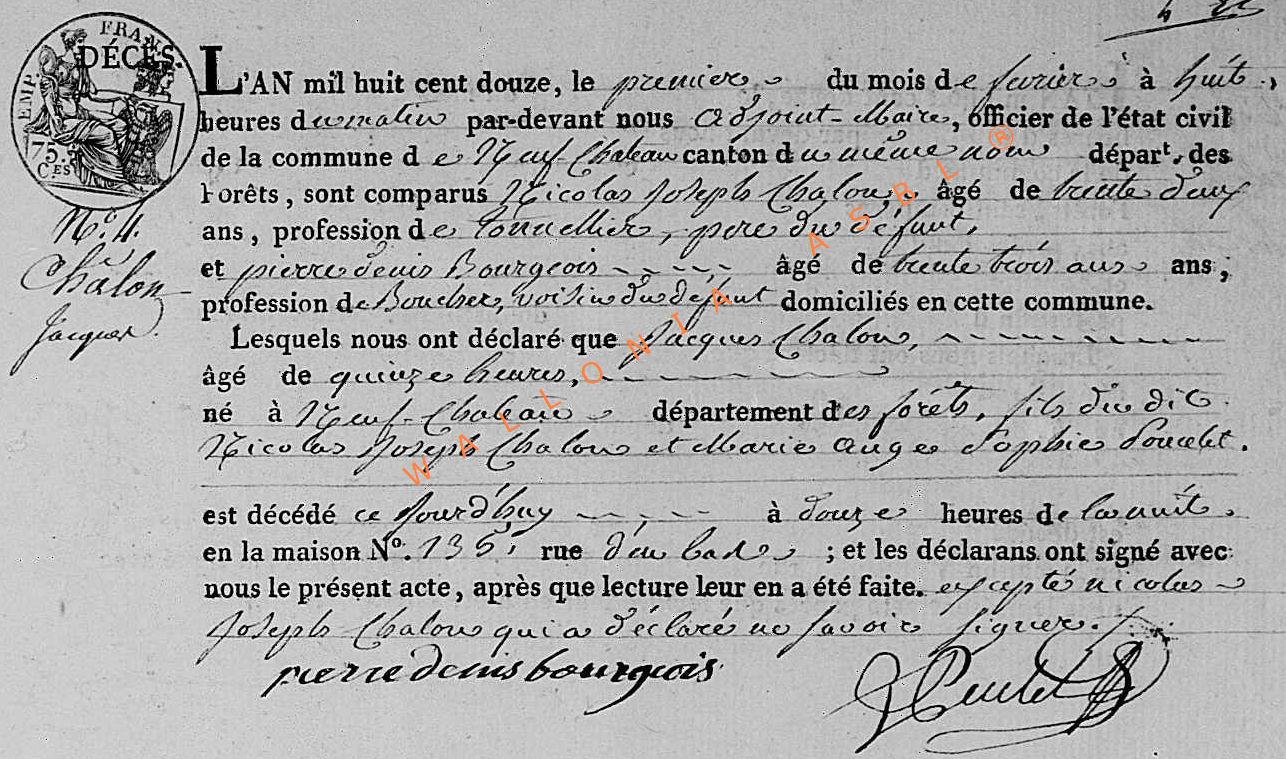 FRAN.
EMP.
75.
C.ES
DÉCÈS.
L'AN mil huit cent douze, le premier du mois de fevrier à huit
heures du matin par-devant nous adjoint-Maire, officier de l'état civil
de la commune de Neuf-Chateau canton du même nom départ. des
Forêts, sont comparus Nicolas Joseph Chalon, âgé de trente deux
ans, profession de tonnellier, pere du défunt,
et pierre denis Bourgeois âgé de trente trois ans ans;
profession de Boucher, voisin du defunt domiciliés en cette commune.
Lesquels nous ont déclaré que Jacques Chalon,
âgé de quinze heures,
né à Neuf-Chateau département des forêts, fils du dit
Nicolas Joseph Chalon et Marie ange Sophie Poncelet.
est décédé ce Jourd'huy à douze heures de la nuit,
en la maison N°. 135, rue d'en bas ; et les déclarans ont signé avec
nous le présent acte, après que lecture leur en a été faite. excepté nicolas
Joseph Chalon qui a déclaré ne savoir signer.
pierre denis bourgeois
N°. 4.
Châlon
Jacques.
WALLONIA ASBL ®